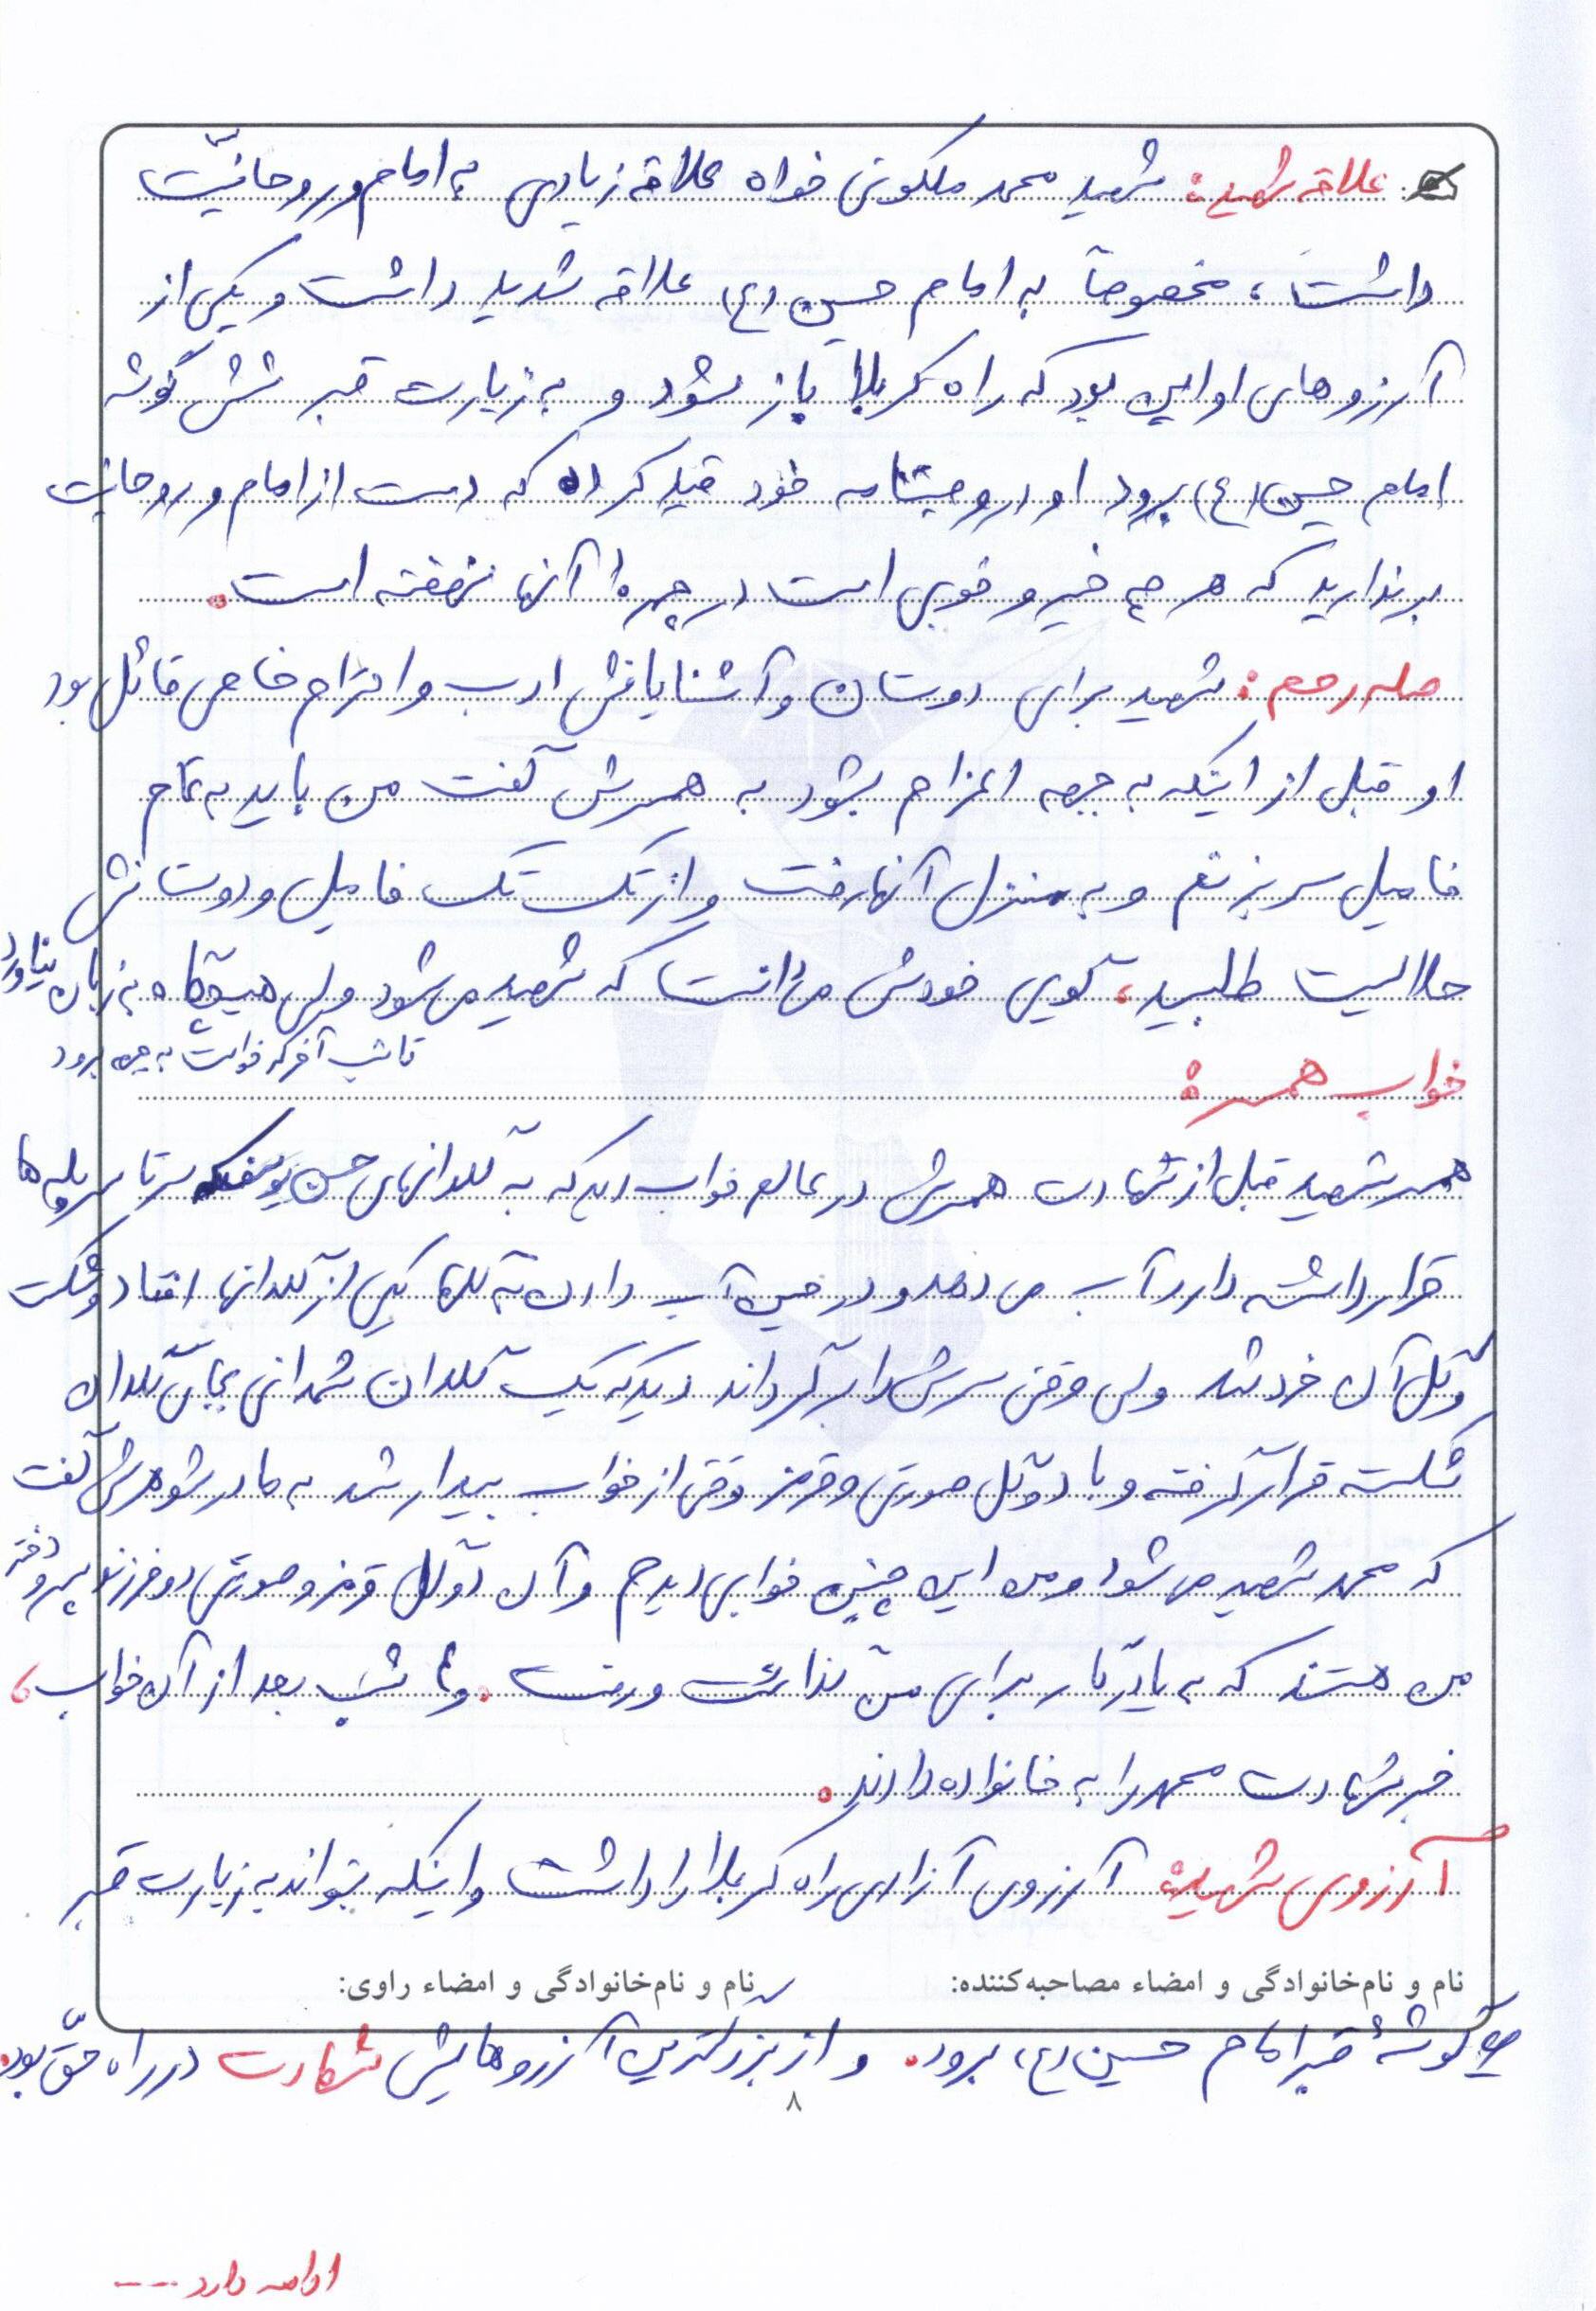 علاقه شهید: شهید محمد ملکوتی خواه علاقه زیادی به امام و روحانیّت
داشت، مخصوصاً به امام حسین (ع) علاقه شدید داشت و یکی از
آرزوهای او این بود که راه کربلا باز بشود و به زیارت قبر شش گوشه
امام حسین (ع) برود او در وصیتنامه خود قید کرده که دست از امام و روحانیت
برندارید که هر چه خیر و خوبی است در چهرهٔ آنها نهفته است.
صله رحم: شهید برای دوستان و آشنایانش ادب و احترام خاصی قائل بود
او قبل از اینکه به جبهه اعزام بشود به همسرش گفت من باید به تمام
فامیل سر بزنم و به منزل آنها رفت و از تک تک فامیل و دوستانش
حلالیت طلبید، گویی خودش می‌دانست که شهید می‌شود ولی هیچگاه به زبان نیاورد
تا شب آخر که خواست به جبهه برود
خواب همسر:
همسر شهید قبل از شهادت همسرش در عالم خواب دید که به گلدانهای حسن یوسف که سرتاسر پله ها
قرار داشته دارد آب می دهد و در حین آب دادن به گلها یکی از گلدانها افتاد و شکست
و گل آن خرد شد ولی وقتی سرش را برگرداند دید که یک گلدان شمعدانی بجای گلدان
شکسته قرار گرفته و با دو گل صورتی و قرمز وقتی از خواب بیدار شد به مادر شوهرش گفت
که محمد شهید می شود و من این چنین خوابی دیدم و آن دو گل قرمز و صورتی دو فرزند پسر و دختر
من هستند که به یادگار برای من گذاشت و رفت. و شب بعد از آن خواب،
خبر شهادت محمد را به خانواده دادند.
آرزوی شهید: آرزوی آزادی راه کربلا را داشت و اینکه بتواند به زیارت قبر
نام و نام‌خانوادگی و امضاء مصاحبه‌کننده: نام و نام‌خانوادگی و امضاء راوی:
گوشهٔ قبر امام حسین (ع) برود. و از بزرگترین آرزوهایش شهادت در راه حقّ بود.
۸
ادامه دارد ---